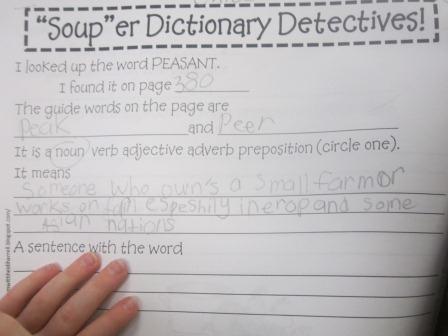 "Soup"er Dictionary Detectives!
I looked up the word PEASANT.
I found it on page 380
The guide words on the page are
Peak and Peer
It is a noun verb adjective adverb preposition (circle one).
It means
Someone who own's a small farm or
works on espeshily in erop and some
Asian nations
A sentence with the word